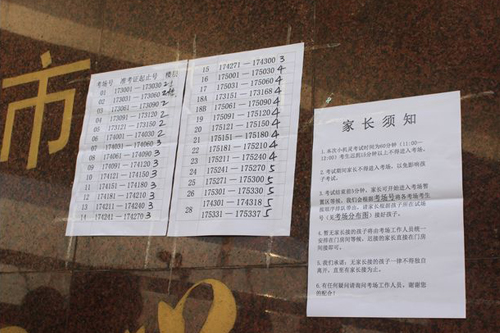 市
考场号 准考证起止号 楼层
01 173001 — 173030 2
02 173031 — 173060 2楼
03 173061 — 173090 2
04 173091 — 173120 2
05 173121 — 173150 2
06 174001 — 174030 2
07 174031 — 174060 3
08 174061 — 174090 3
09 174091 — 174120 3
10 174121 — 174150 3
11 174151 — 174180 3
12 174181 — 174210 3
13 174211 — 174240 3
14 174241 — 174270 3
15 174271 — 174300 3
16 175001 — 175030 4
17 175031 — 175060 4
18A 173151 — 173168 4
18B 175061 — 175090 4
19 175091 — 175120 4
20 175121 — 175150 4
21 175151 — 175180 4
22 175181 — 175210 4
175211 — 175240 4
24 175241 — 175270 5
25 175271 — 175300 5
26 175301 — 175330 5
174301 — 174318 5
28 175331 — 175337 5
家长须知
1.本次小机灵考试时间为60分钟（11:00—
12:00）考生迟到10分钟以上不得进入考场。
2.考试期间家长不得进入考场，以免影响孩
子考试。
3.考试结束前5分钟，家长可开始进入考场等
候区等候，我们会根据考场号将各考场考生
（见考场分布图）接好孩子。
4.暂无家长接的孩子将由考场工作人员统一
安排在门房间等候，迟接的家长直接在门房
间接即可。
5.我们承诺：无家长接的孩子一律不得独自
离开，直至有家长接为止。
6.有任何疑问请询问考场工作人员，谢谢您
的配合！